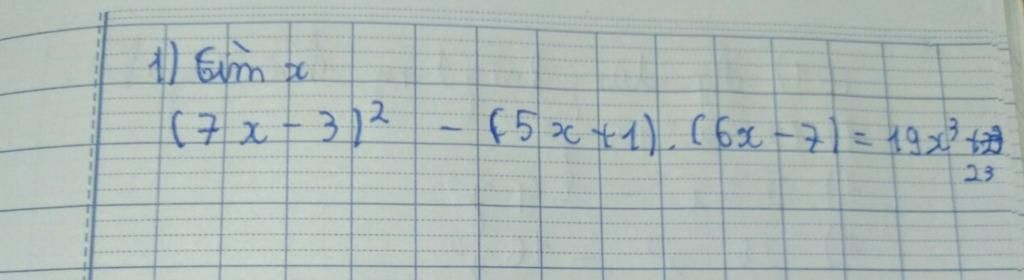 1) Tìm x
(7x - 3)² - (5x + 1).(6x - 7) = 19x³ +
23